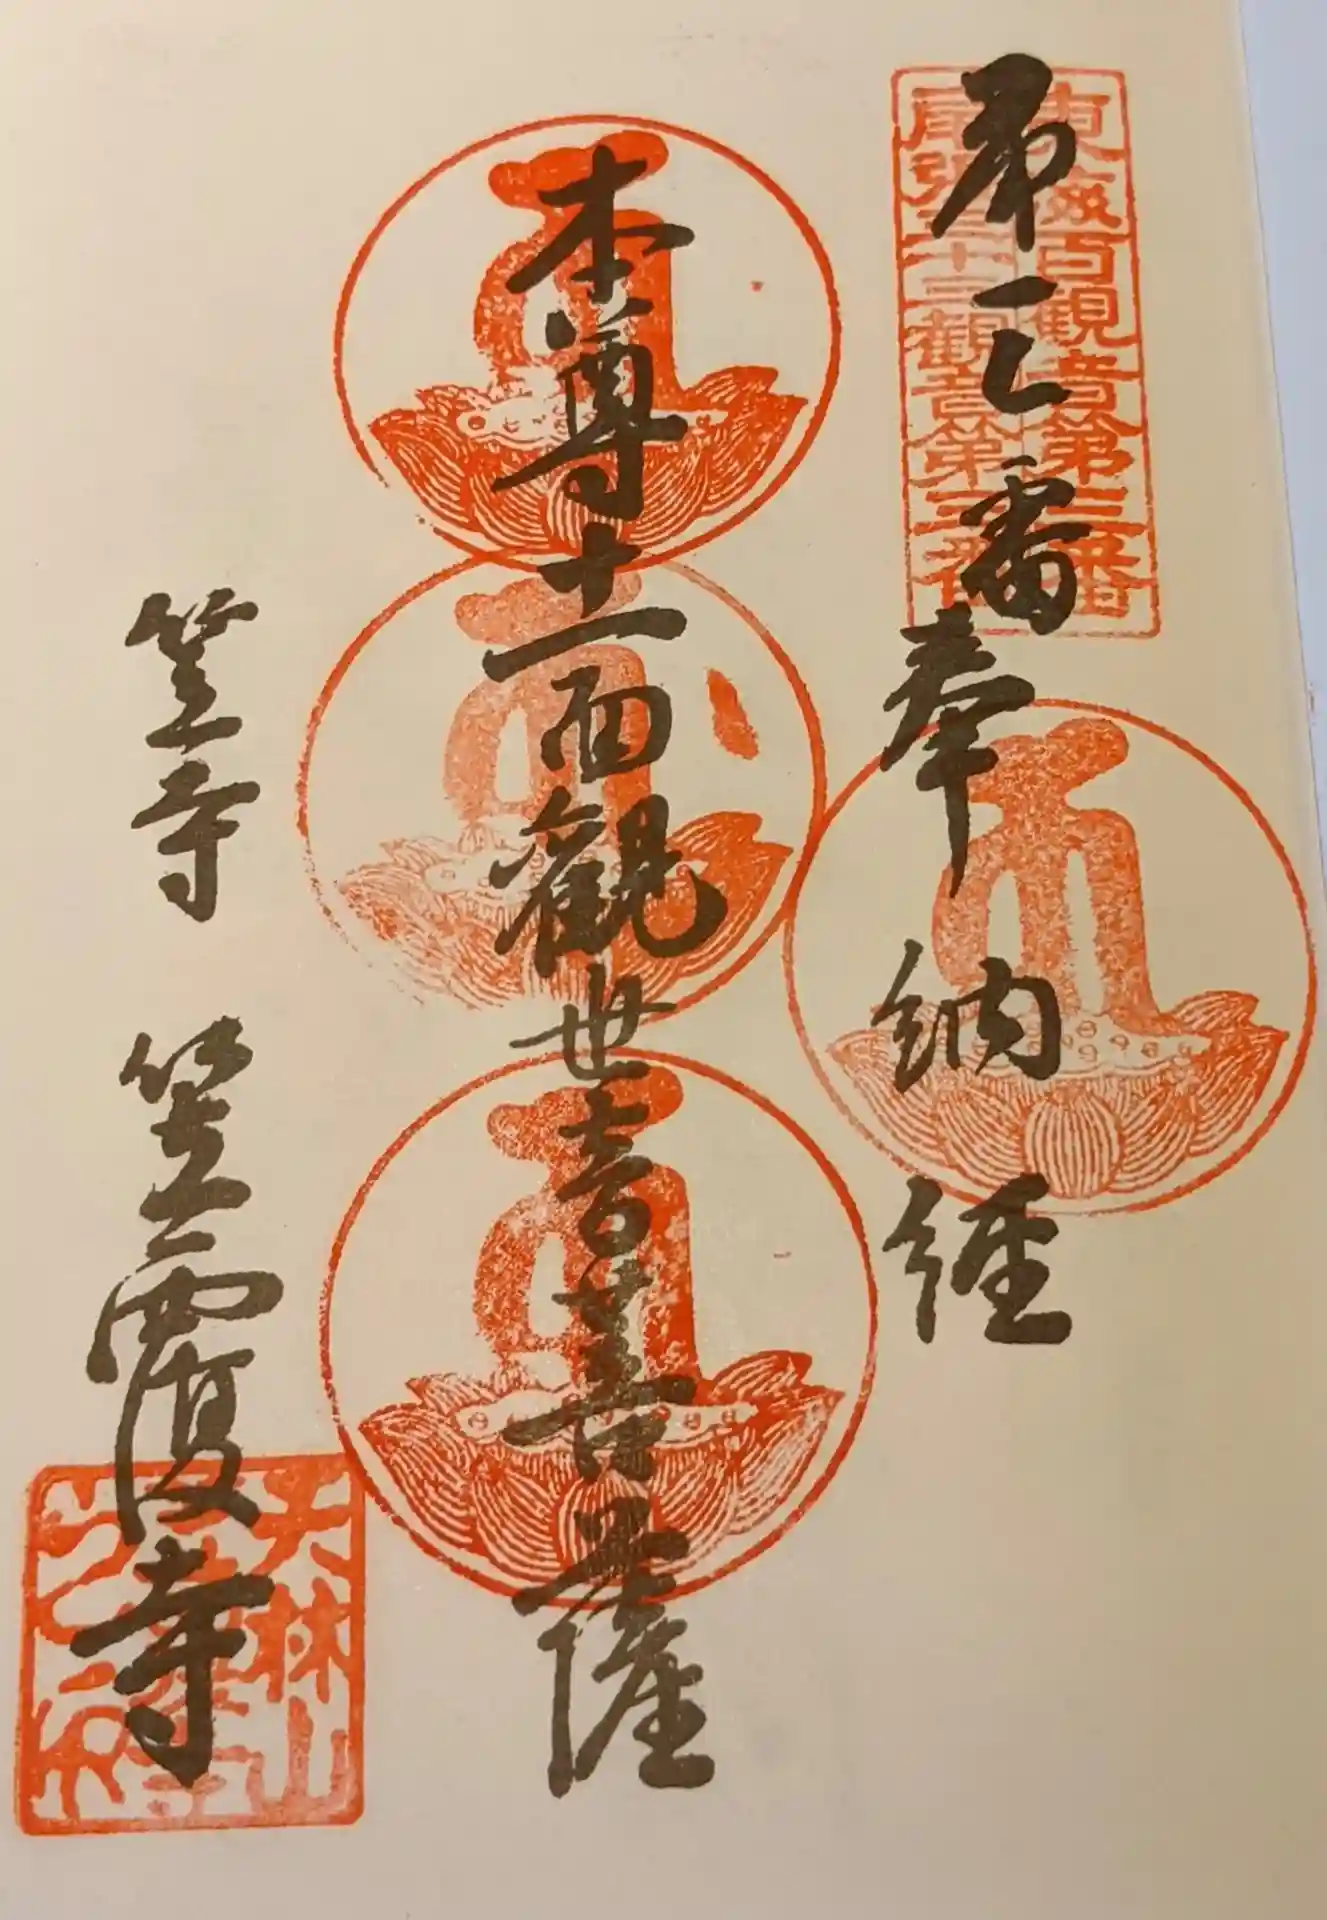 東海百観音第三番
尾張三十三観音第三番
第三番 奉納経
本尊十一面觀世音菩薩
笠寺 笠覆寺
天林山